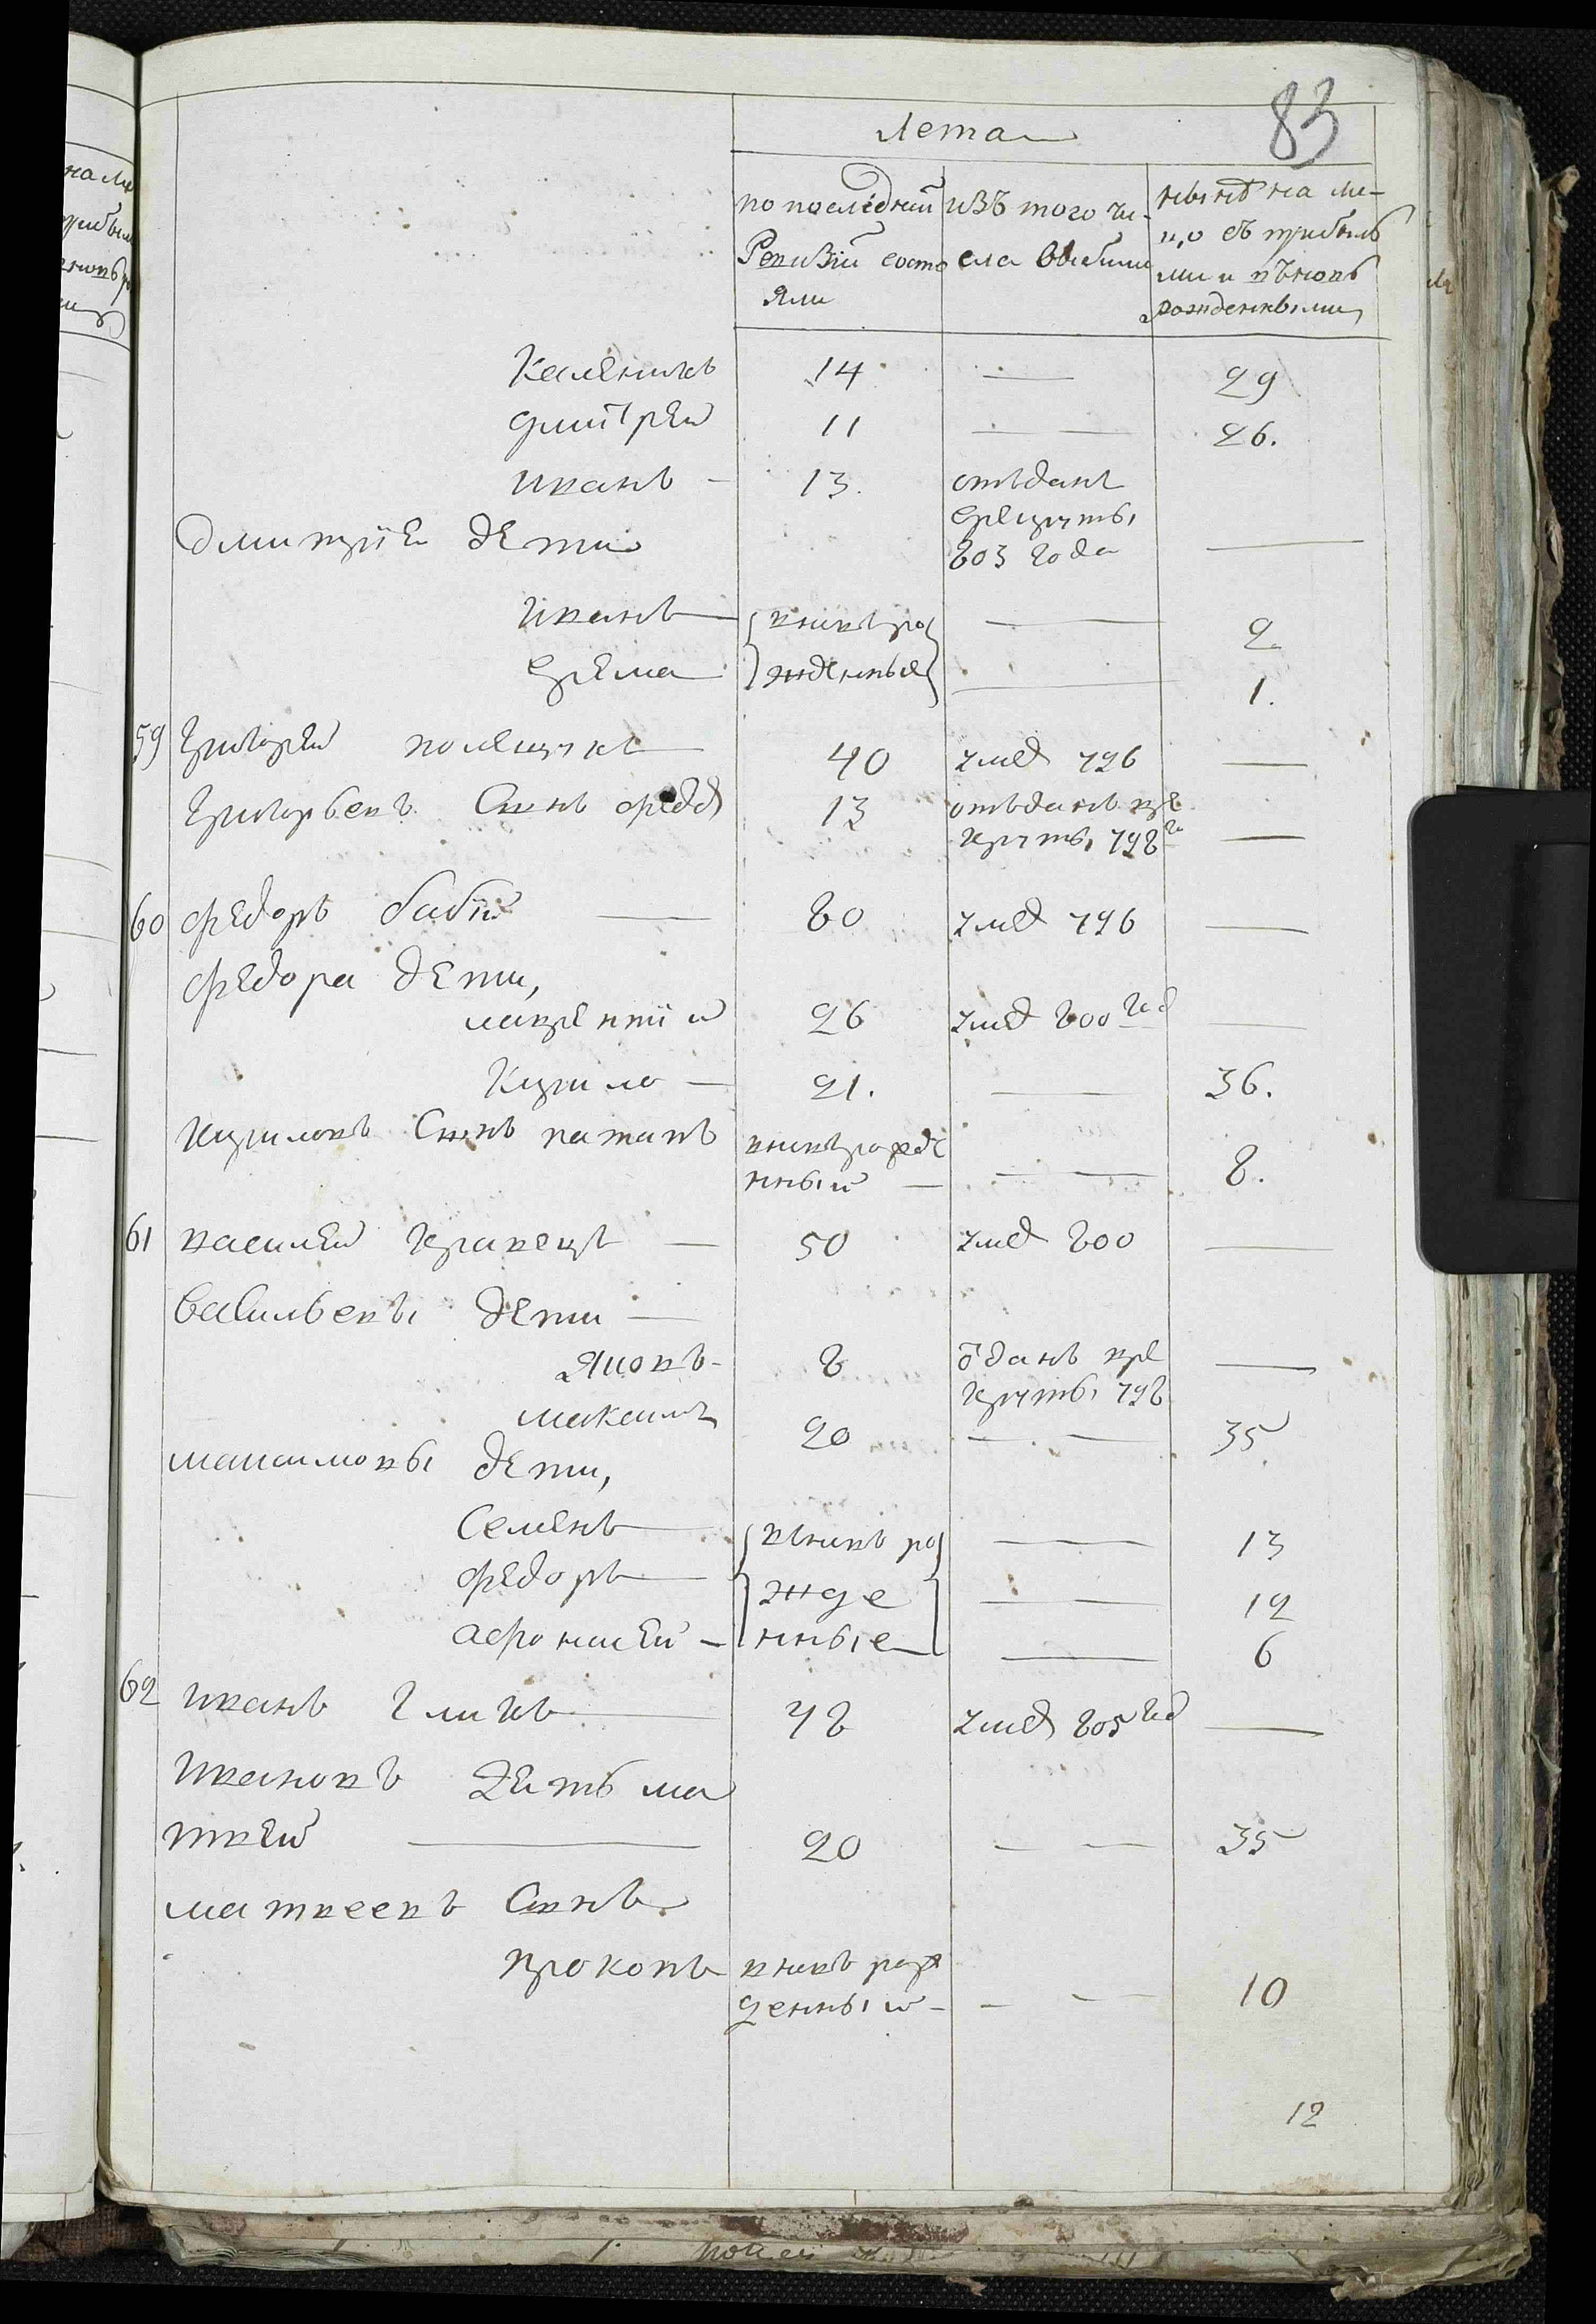 83
Лета
по последней Ревизии состояли
изъ того числа выбыли
ныне на лицо съ прибылыми и вновь рожденными
Каленикъ 14 — 29
Дмитрей 11 — 26.
Иванъ - 13. отъданъ
врекруты
Дмитрiя дети 803 года —
Иванъ — вновь ро — 2
Ерема жденные — 1.
59 Григорей Полещукъ — 40 умеръ 796 —
Григорьевъ Сынъ Федоръ 13 отъданъ вре
круты 798 —
60 Федоръ Бабiй — 80 умеръ 796 —
Федора дети,
Лаврентiй 26 умеръ 800 год —
Кирило — 21. — 36.
Кириловъ Сынъ Потапъ вновь рожде
нный — — 8.
61 Василей Кравецъ — 50 умеръ 800 —
Васильевы дети —
Яковъ - 8 отданъ вре —
круты 798
Максимъ 20 — — 35
Максимовы дети,
Семенъ — вновь ро — 13
Федоръ — жде — 12
Афонасей — нные — 6
62 Иванъ — 48 умеръ 805 год —
Ивановъ Сынъ Ма
твей — 20 — — 35
Матвеевъ Сынъ
Прокопъ вновь рож
денный - — — 10
12